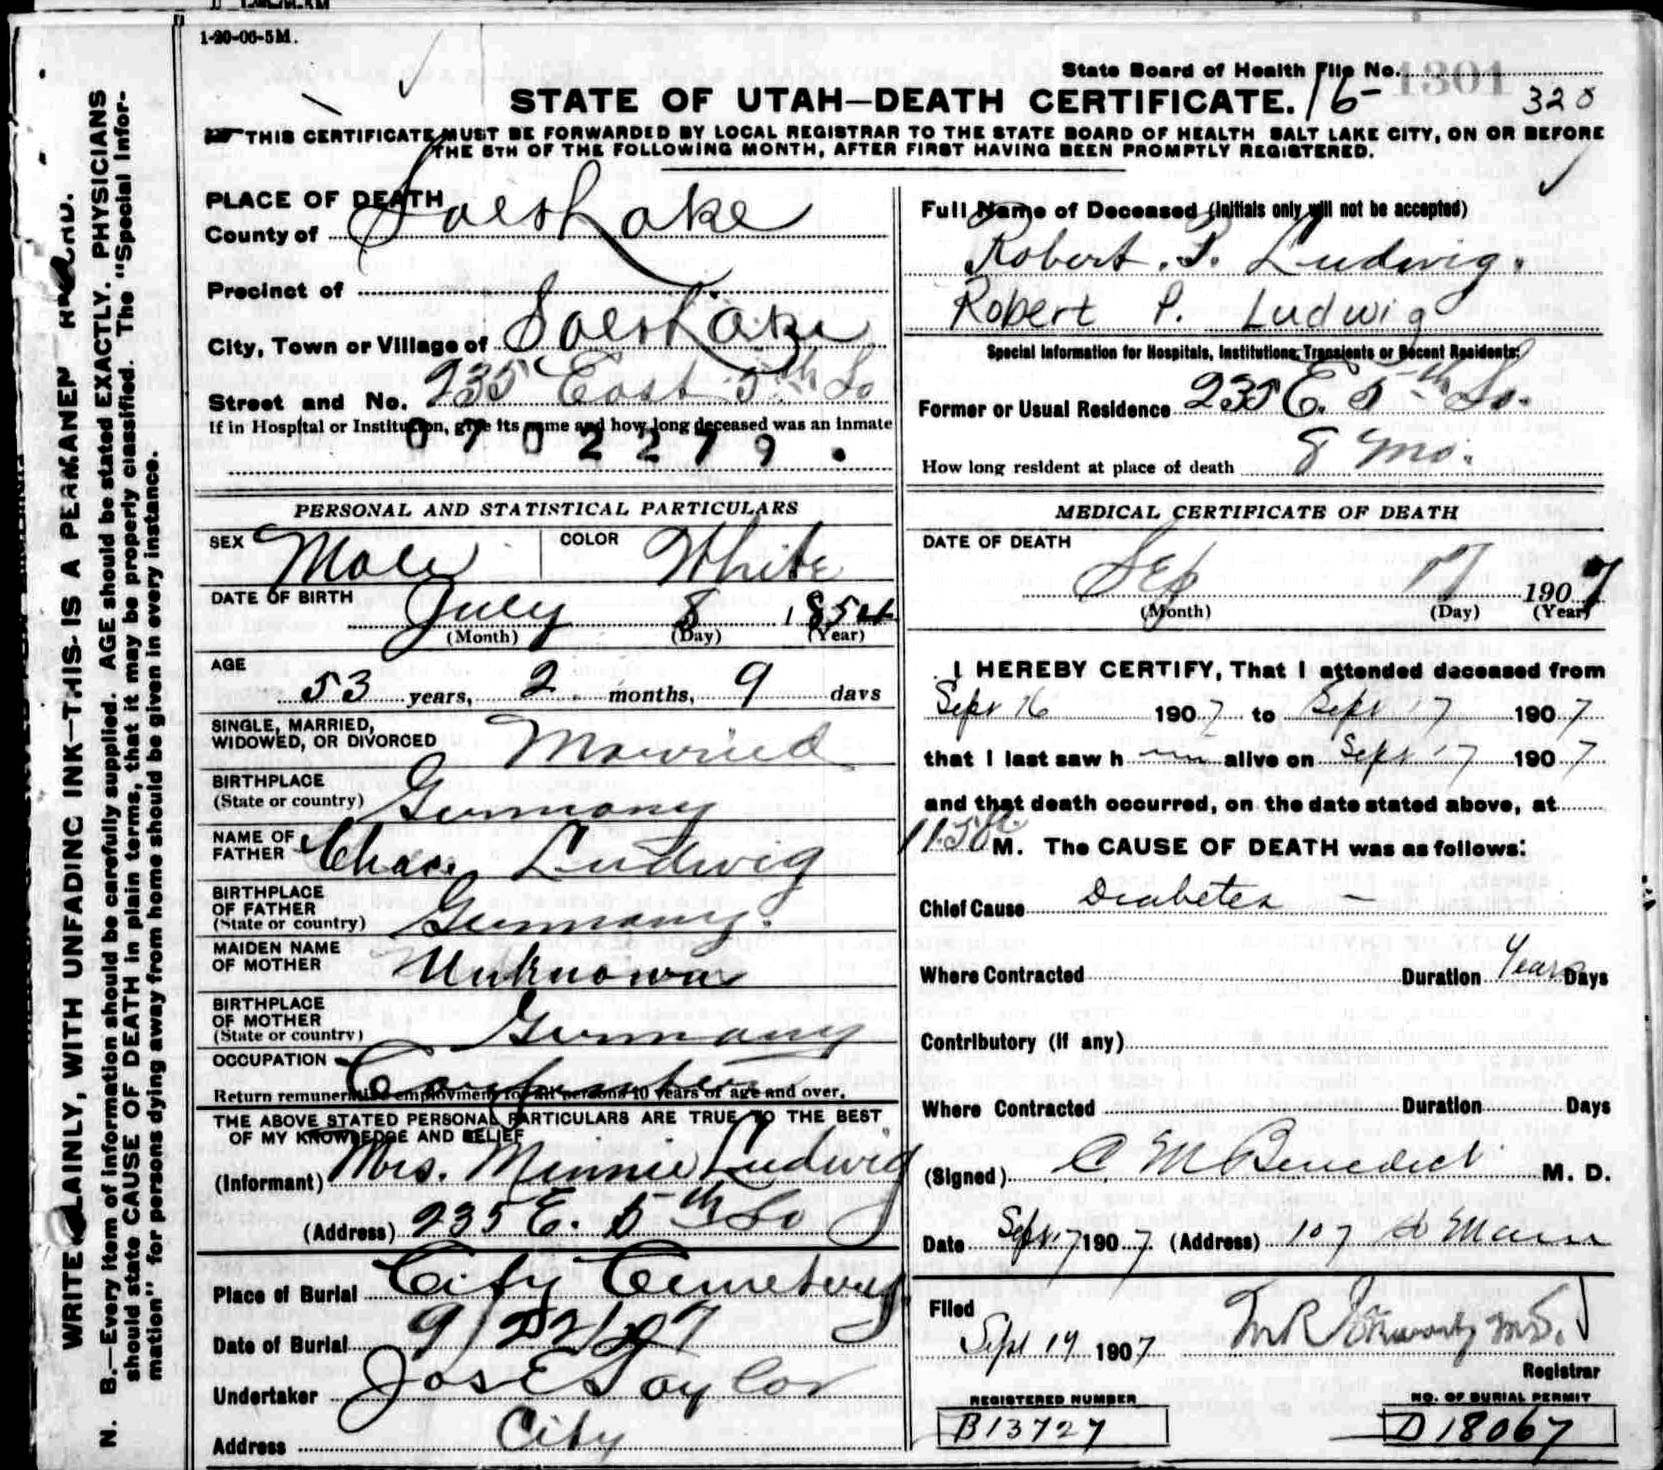 1-20-06-5M.
State Board of Health File No. 1301
STATE OF UTAH—DEATH CERTIFICATE. 16- 328
THIS CERTIFICATE MUST BE FORWARDED BY LOCAL REGISTRAR TO THE STATE BOARD OF HEALTH SALT LAKE CITY, ON OR BEFORE
THE 5TH OF THE FOLLOWING MONTH, AFTER FIRST HAVING BEEN PROMPTLY REGISTERED.
WRITE PLAINLY, WITH UNFADING INK—THIS IS A PERMANENT RECORD.
N. B.—Every item of information should be carefully supplied. AGE should be stated EXACTLY. PHYSICIANS
should state CAUSE OF DEATH in plain terms, that it may be properly classified. The "Special Infor-
mation" for persons dying away from home should be given in every instance.
PLACE OF DEATH
County of Salt Lake
Precinct of
City, Town or Village of Salt Lake
Street and No. 235 East 5th So
If in Hospital or Institution, give its name and how long deceased was an inmate
0702279.
Full Name of Deceased (initials only will not be accepted)
Robert P. Ludwig.
Robert P. Ludwig
Special Information for Hospitals, Institutions, Transients or Recent Residents:
Former or Usual Residence 235 E. 5th So.
How long resident at place of death 8 mo.
PERSONAL AND STATISTICAL PARTICULARS
SEX Male COLOR White
DATE OF BIRTH July 8 1854
(Month) (Day) (Year)
AGE
53 years, 2 months, 9 days
SINGLE, MARRIED,
WIDOWED, OR DIVORCED Married
BIRTHPLACE
(State or country) Germany
NAME OF
FATHER Chas. Ludwig
BIRTHPLACE
OF FATHER
(State or country) Germany.
MAIDEN NAME
OF MOTHER Unknown
BIRTHPLACE
OF MOTHER
(State or country) Germany
OCCUPATION Carpenter
Return remunerative employment for all persons 10 years of age and over.
THE ABOVE STATED PERSONAL PARTICULARS ARE TRUE TO THE BEST
OF MY KNOWLEDGE AND BELIEF
(Informant) Mrs. Minnie Ludwig
(Address) 235 E. 5th So
Place of Burial City Cemetery
Date of Burial 9/22/07
Undertaker Jos E Taylor
Address City
MEDICAL CERTIFICATE OF DEATH
DATE OF DEATH
Sep 17 1907
(Month) (Day) (Year)
I HEREBY CERTIFY, That I attended deceased from
Sept 16 1907 to Sept 17 1907
that I last saw him alive on Sept 17 1907
and that death occurred, on the date stated above, at
11.50 M. The CAUSE OF DEATH was as follows:
Chief Cause Diabetes -
Where Contracted Duration Years Days
Contributory (if any)
Where Contracted Duration Days
(Signed) C M Benedict M. D.
Date Sept 17 1907. (Address) 107 Main
Filed
Sept 19 1907
Registrar
REGISTERED NUMBER
B13727
NO. OF BURIAL PERMIT
D18067